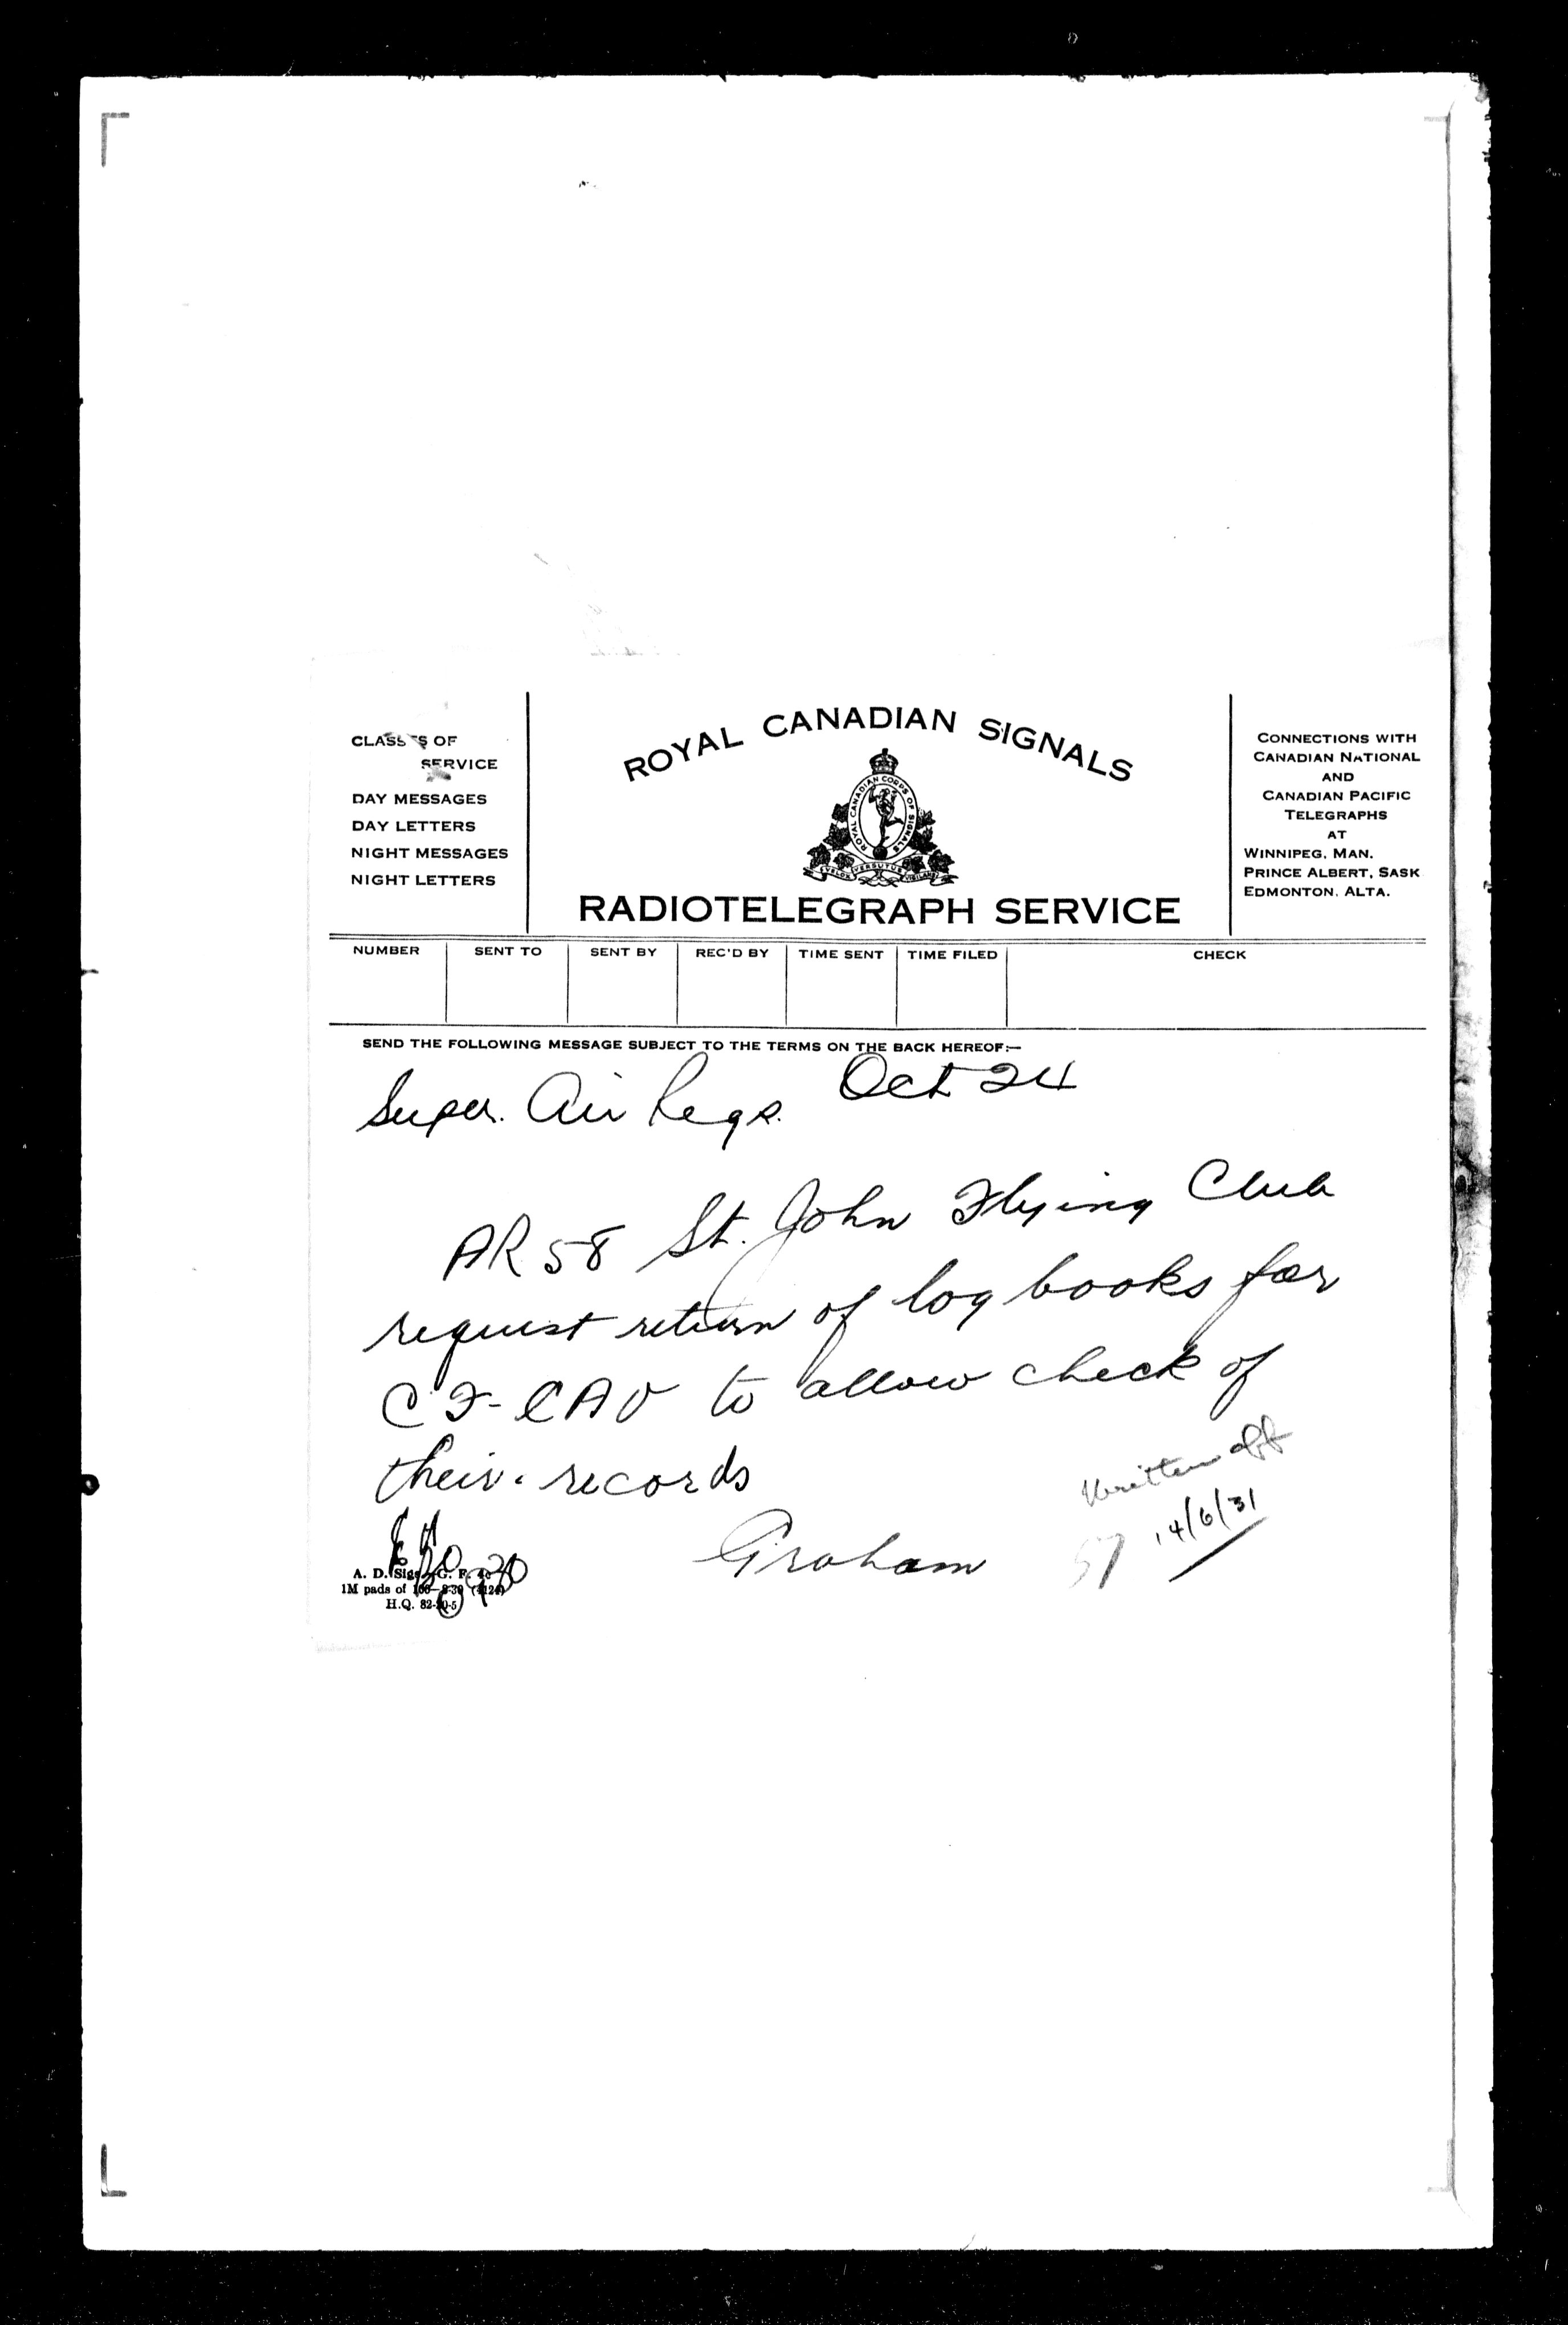 CLASSES OF
SERVICE
DAY MESSAGES
DAY LETTERS
NIGHT MESSAGES
NIGHT LETTERS
ROYAL CANADIAN SIGNALS
ROYAL CANADIAN CORPS OF SIGNALS
VELOX VERSUTUS VIGILANS
RADIOTELEGRAPH SERVICE
CONNECTIONS WITH
CANADIAN NATIONAL
AND
CANADIAN PACIFIC
TELEGRAPHS
AT
WINNIPEG, MAN.
PRINCE ALBERT, SASK
EDMONTON, ALTA.
NUMBER SENT TO SENT BY REC'D BY TIME SENT TIME FILED CHECK
SEND THE FOLLOWING MESSAGE SUBJECT TO THE TERMS ON THE BACK HEREOF:—
Oct 24
Super. Air Regs.
AR 58 St. John Flying Club
request return of log books for
CF-CAV to allow check of
their records
Written off
14/6/31
57
Graham
A. D. Sigs. G. F.
1M pads of 100—8-30
H.Q. 82-20-5